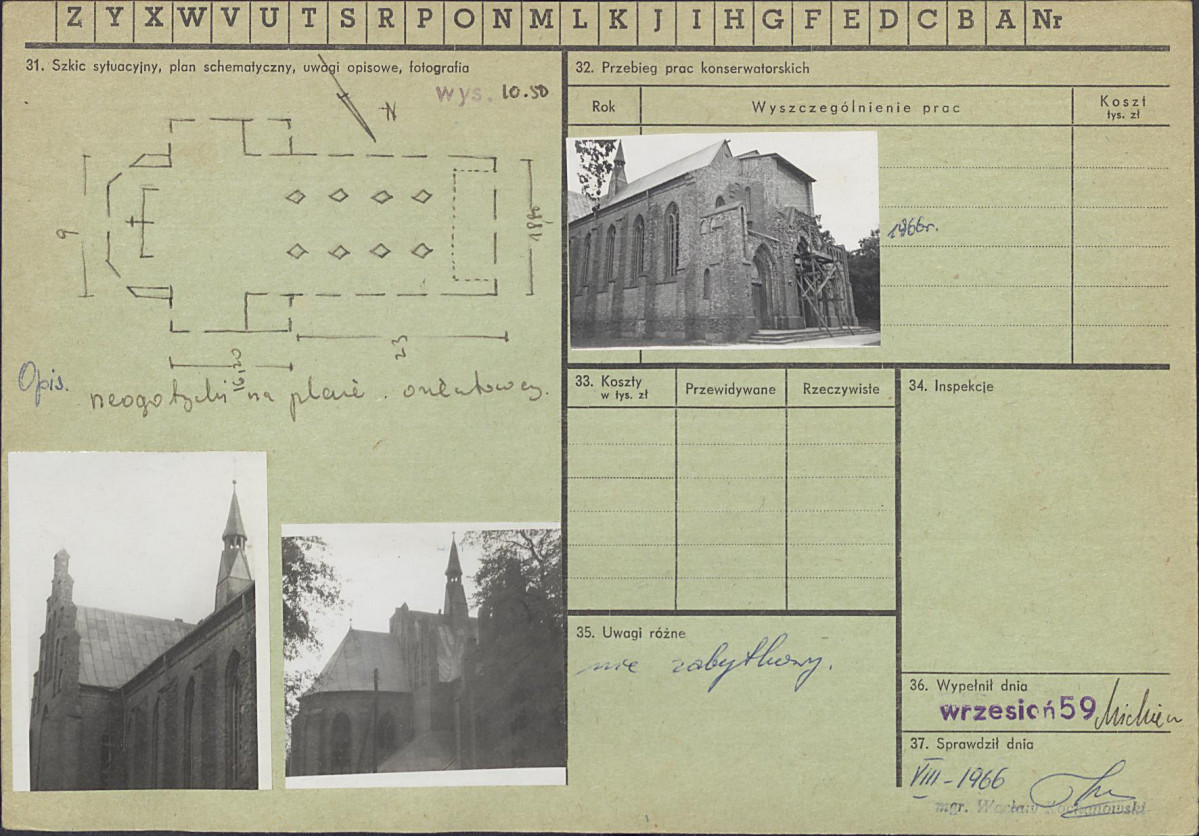 Z Y X W V U T S R P O N M L K J I H G F E D C B A Nr
31. Szkic sytuacyjny, plan schematyczny, uwagi opisowe, fotografia
wys. 10.50
N
9
16,20
23
Opis. neogotycki na planie
32. Przebieg prac konserwatorskich
Rok Wyszczególnienie prac Koszt
tys. zł
1966r.
33. Koszty
w tys. zł
Przewidywane Rzeczywiste
34. Inspekcje
35. Uwagi różne
nie zabytkowy.
36. Wypełnił dnia
wrzesień 59
37. Sprawdził dnia
VIII-1966
mgr. Wacław Kochanowski